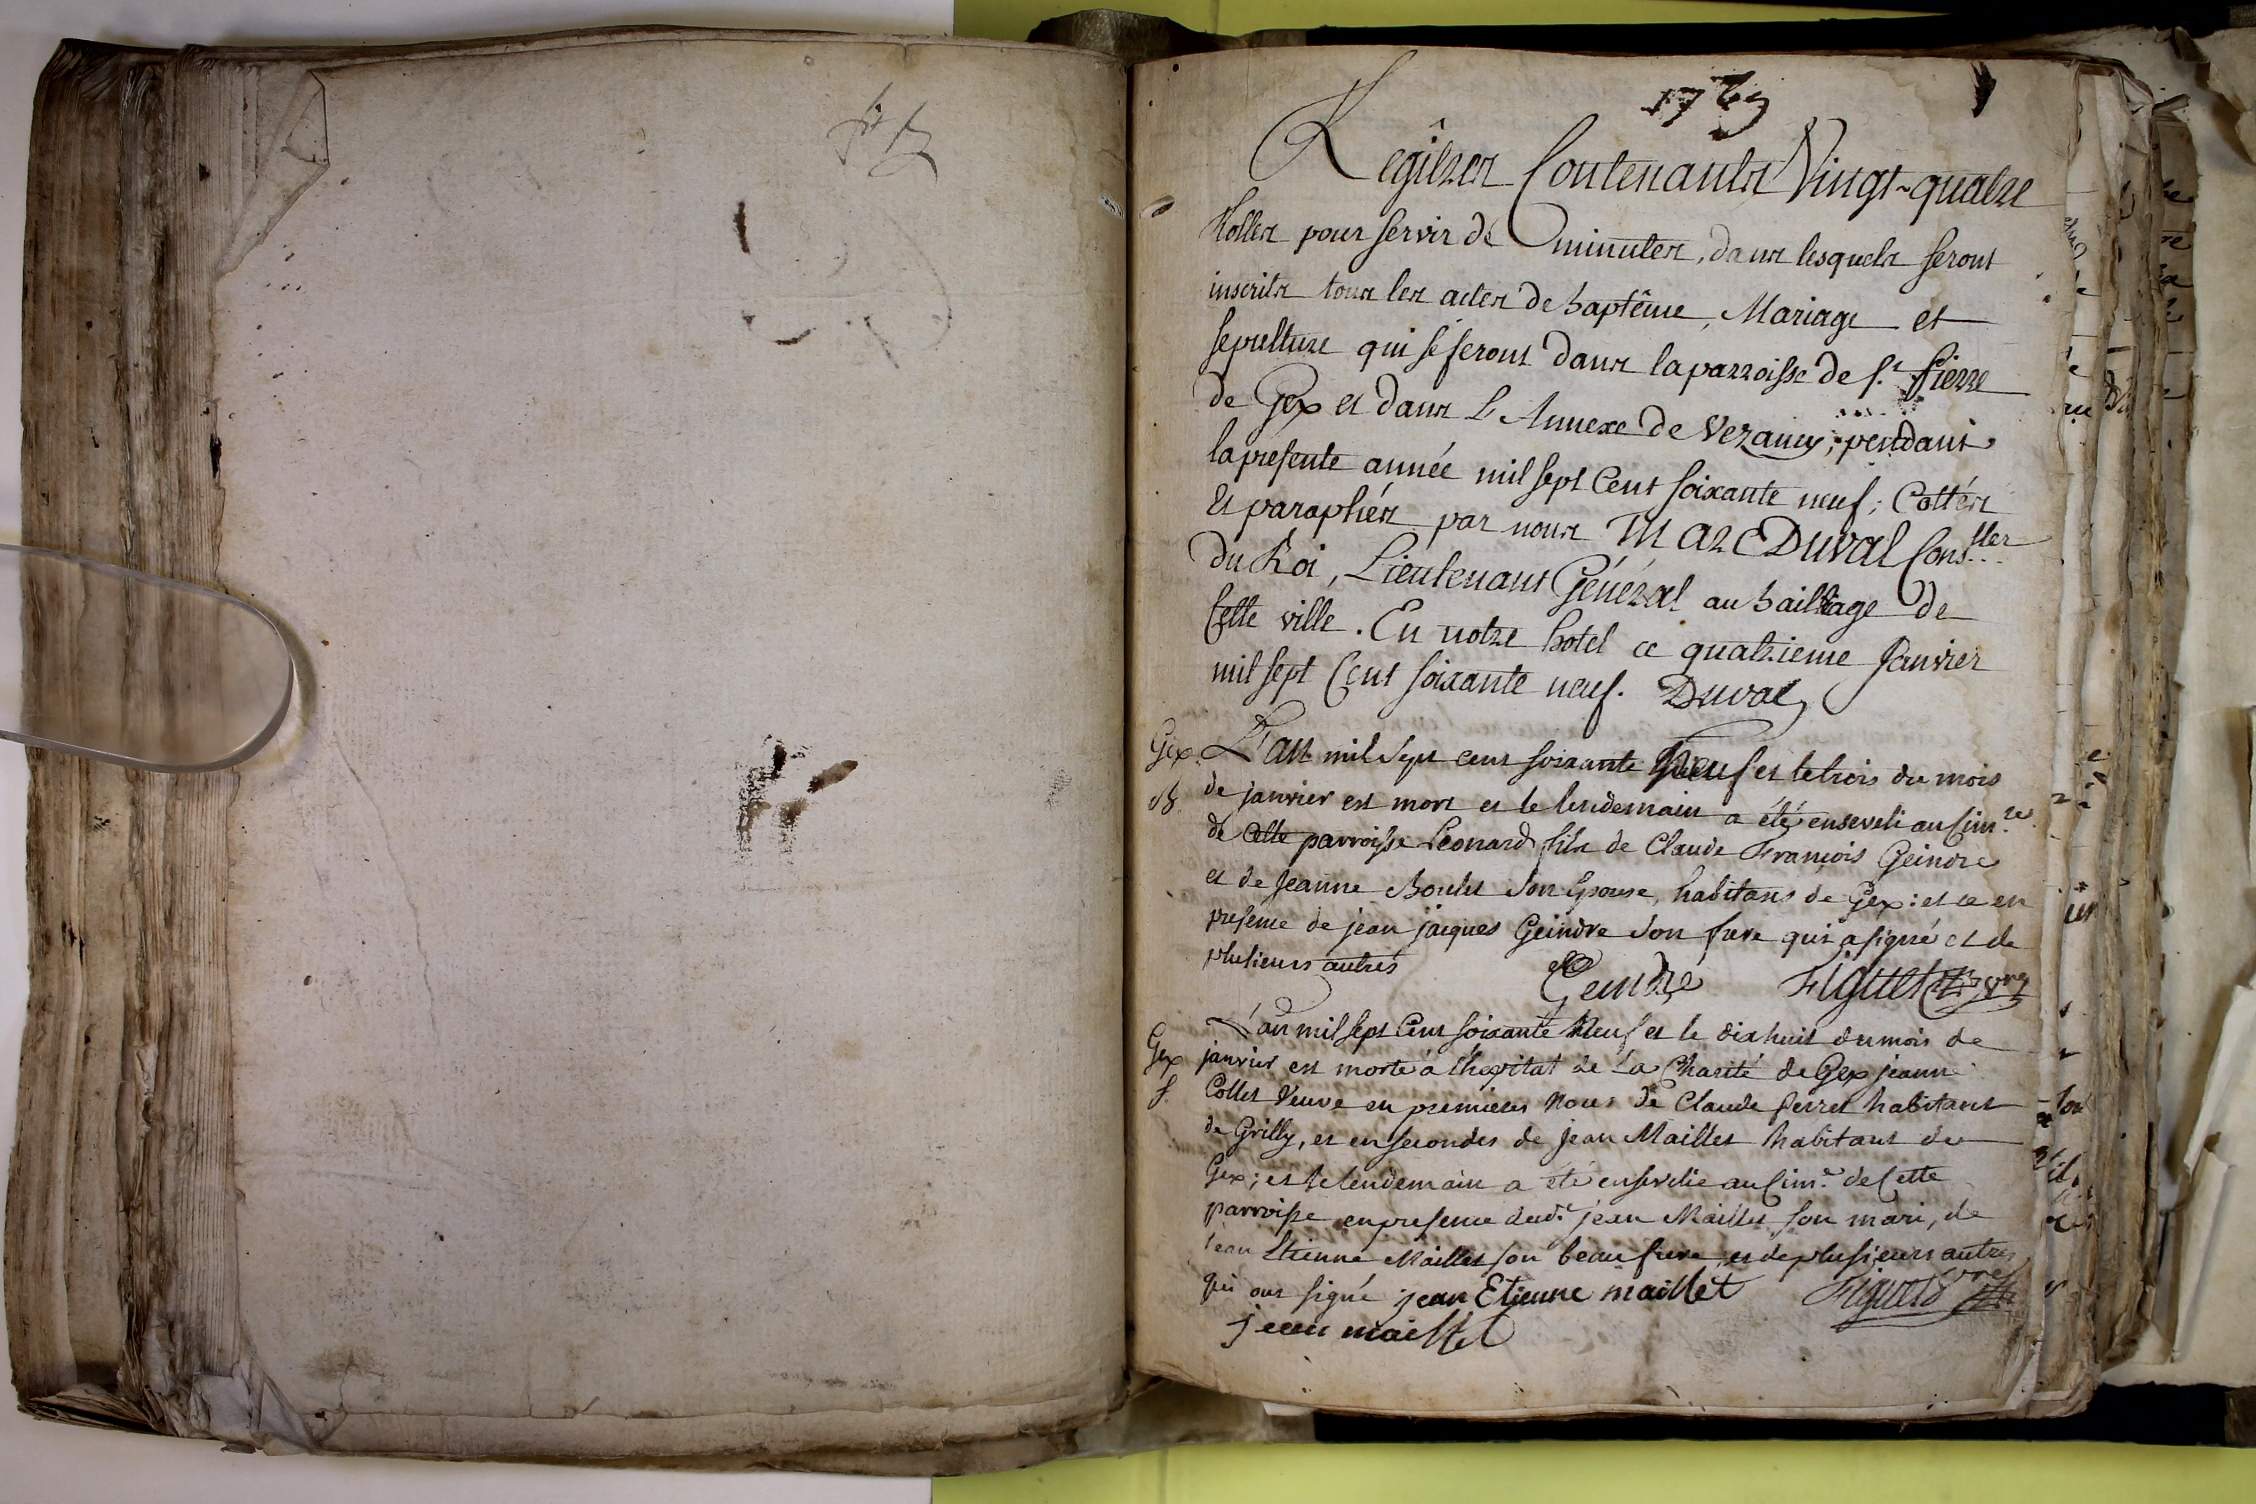 1769
Regitres Contenants Vingt-quatre
Rolles pour servir de minutes, dans lesquels seront
inscrits tous les actes de baptême, Mariage et
sepulture qui se feront dans la parroisse de S.t Pierre
de Gex et dans L'Annexe de Vezancy, pendant
la presente année mil sept Cent soixante neuf; Cottés
et paraphés par nous MARC DUVAL Cons.ller
du Roi, Lieutenant Général au bailliage de
Cette ville. En notre hotel ce quatrieme Janvier
mil sept Cent soixante neuf. Duval
Gex. L'an mil sept cent soixante Neuf et le trois du mois
S. de janvier est mort et le lendemain a été enseveli au Cim.re
de cette parroisse Leonard fils de Claude François Geindre
et de Jeanne Boulet son Epouse, habitans de Gex: et ce en
presence de jean jacques Geindre son frere qui a signé et de
plusieurs autres
Geindre Figuet
Gex L'an mil sept Cent soixante Neuf et le dixhuit du mois de
janvier est morte à l'hopital de La Charité de Gex jeanne
S. Collet Veuve en premieres Noces de Claude Perret habitant
de Grilly, et en secondes de jean Maillet habitant de
Gex; et le lendemain a été ensevelie au Cim.e de Cette
parroisse en presence dud.t jean Maillet son mari, de
jean Etienne Maillet son beau frere, et de plusieurs autres
qui ont signé jean Etienne maillet Figuet
jean maillet